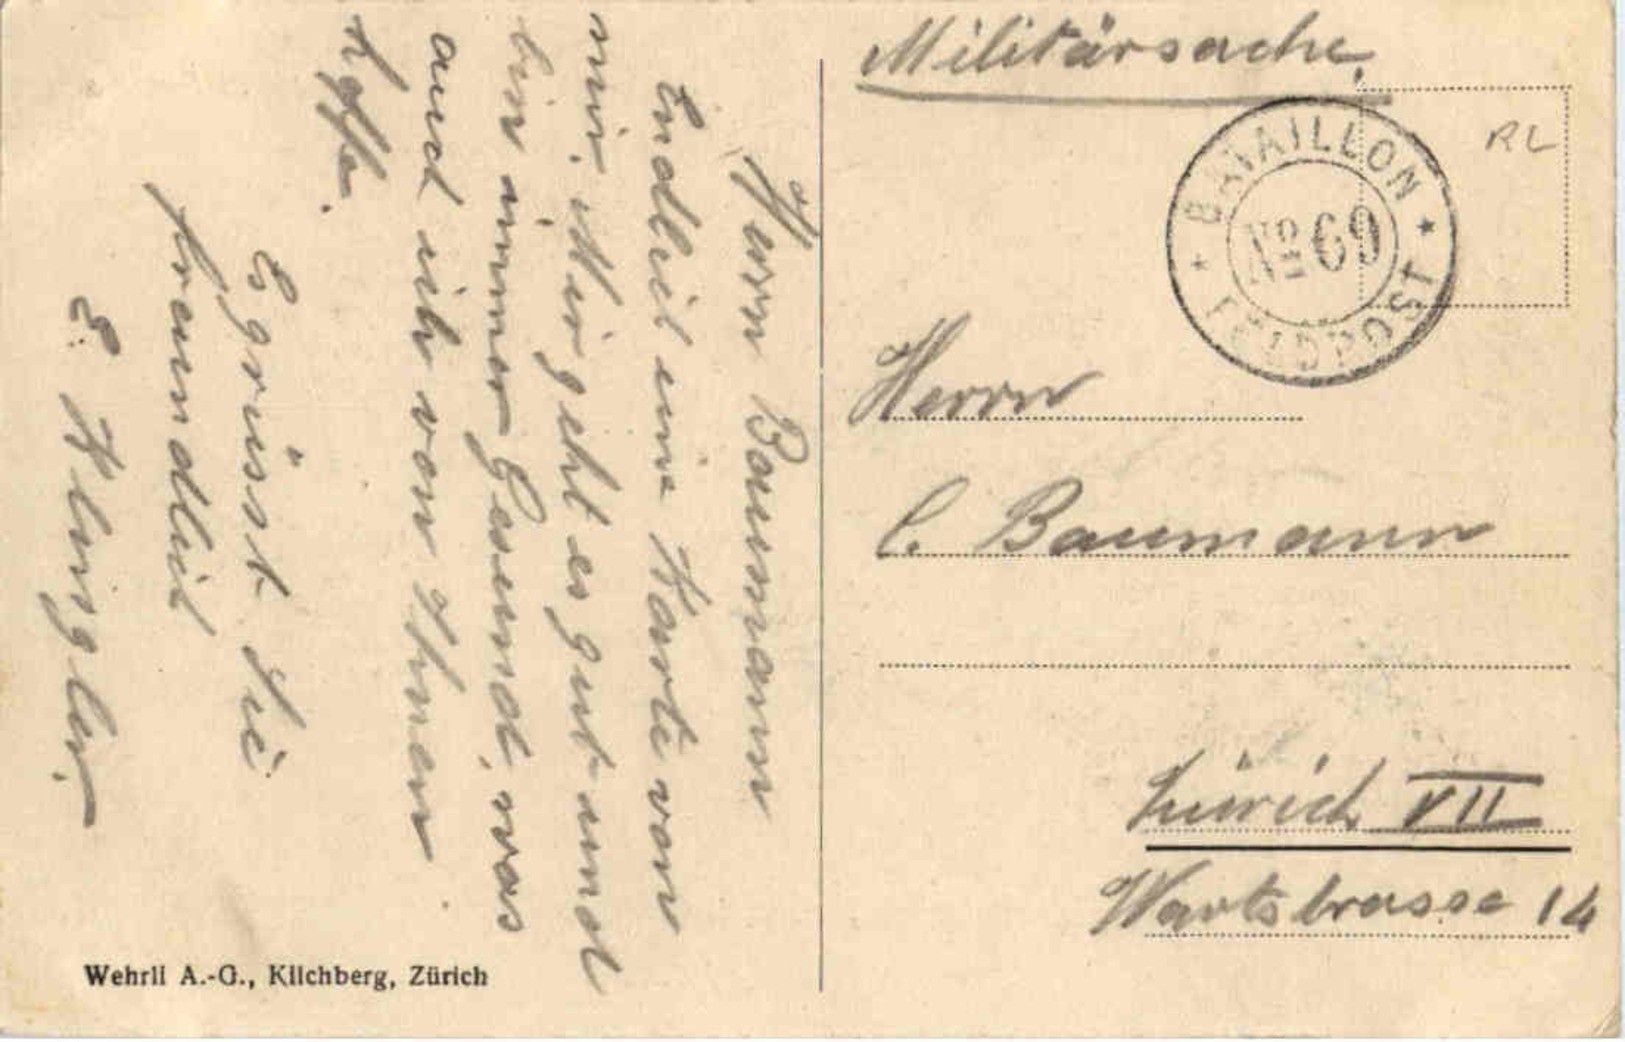 Militärsache.
BATAILLON
No 69
FELDPOST
RL
Herrn
C. Baumann
Zürich VII
Wartstrasse 14
Herrn Baumann
Endlich eine Karte von
mir. Mir geht es gut und
bin immer Gesund, was
auch ich von Ihnen
hoffe.
Es grüsst Sie
freundlich
E. Klingler.
Wehrli A.-G., Kilchberg, Zürich